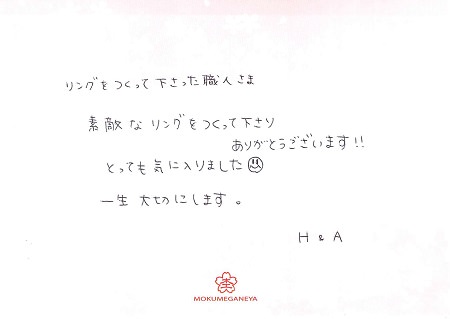 リングをつくって下さった職人さま
素敵なリングをつくって下さり
ありがとうございます!!
とっても気に入りました
一生大切にします。
H & A
MOKUMEGANEYA